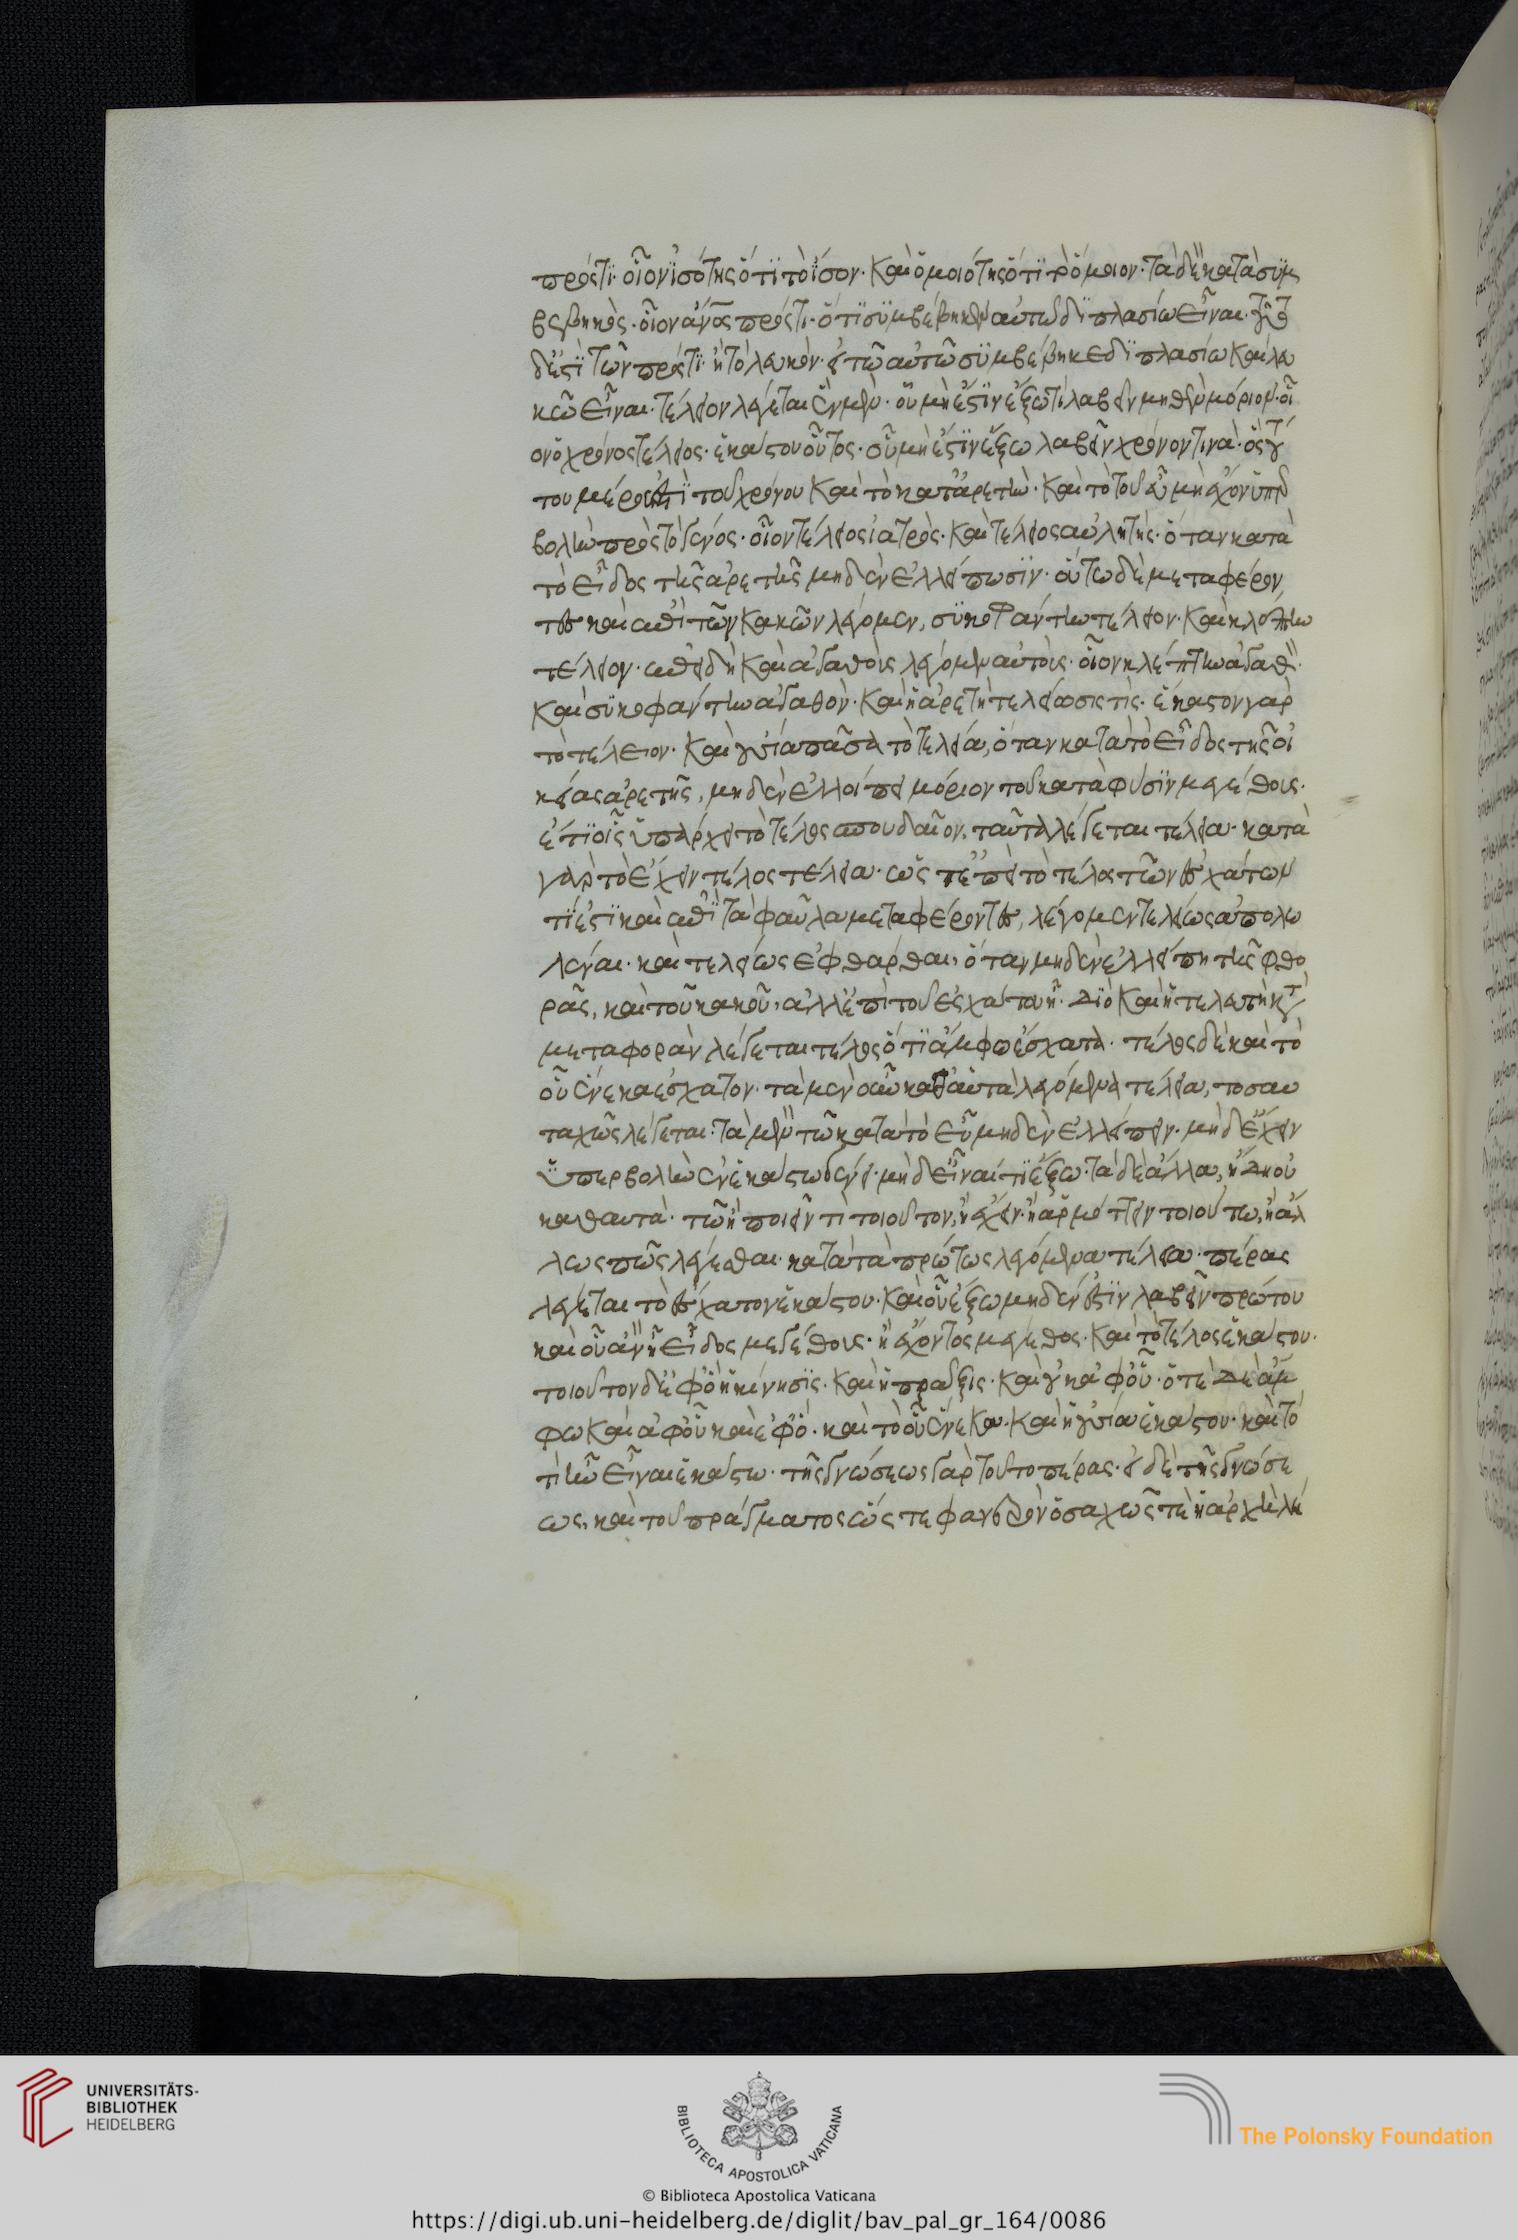 πρός τι· οἷον ἰσότης ὅτι τὸ ἴσον· καὶ ὁμοιότης ὅτι τὸ ὅμοιον· τὰ δὲ κατὰ συμ
βεβηκὸς· οἷον ἄν̅ο̅ς̅ πρός τι· ὅτι συμβέβηκεν αὐτῶ διπλασίω εἶναι· τοῦτο
δ' ἐστὶ τῶν πρός τι· ἢ τὸ λευκὸν· εἰ τῶ αὐτῶ συμβέβηκε διπλασίω καὶ λευ
κῶ εἶναι· τέλειον λέγεται ἓν μὲν· οὗ μὴ ἔστιν ἔξω τι λαβεῖν μηθὲν μόριον· οἷ
ον ὁ χρόνος τέλειος· ἑκάστου οὗτος· οὗ μὴ ἔστιν ἔξω λαβεῖν χρόνον τινὰ· ὃς
του μέρος ἐστὶ τοῦ χρόνου καὶ τὸ κατ' ἀρετὴν· καὶ τὸ τοῦ εὖ μὴ ἔχον ὑπερ
βολὴν πρὸς τὸ γένος· οἷον τέλειος ἰατρὸς· καὶ τέλειος αὐλητής· ὅταν κατὰ
τὸ εἶδος τῆς ἀρετῆς μηδὲν ἐλλείπωσιν· οὕτω δὲ μεταφέρον
τες καὶ ἐπὶ τῶν κακῶν λέγομεν, συκοφάντην τέλειον· καὶ κλέπτην
τέλειον· ἐπειδὴ καὶ ἀγαθοὺς λέγομεν αὐτοὺς· οἷον κλέπτην ἀγαθὸν·
καὶ συκοφάντην ἀγαθὸν· καὶ ἡ ἀρετὴ τελείωσις τὶς· ἕκαστον γὰρ
τὸ τέλειον· καὶ οὐσία πᾶσα τὸ τελεία, ὅταν κατὰ τὸ εἶδος τῆς οἰ
κείας ἀρετῆς, μηδὲν ἐλλείπει μόριον τοῦ κατὰ φύσιν μεγέθους·
ἔτι οἷς ὑπάρχει τὸ τέλος σπουδαῖον, ταῦτα λέγεται τέλεια· κατὰ
γὰρ τὸ ἔχειν τέλος τέλεια· ὥστε ἐπεὶ τὸ τέλος τῶν ἐσχάτων
τί ἐστι καὶ ἐπὶ τὰ φαῦλα μεταφέροντες, λέγομεν τελείως ἀπολω
λέναι· καὶ τελείως ἐφθάρθαι, ὅταν μηδὲν ἐλλείπη τῆς φθο
ρᾶς, καὶ τοῦ κακοῦ, ἀλλ' ἐπὶ τοῦ ἐσχάτου ἦ· διὸ καὶ ἡ τελευτὴ κατὰ
μεταφορὰν λέγεται τέλος ὅτι ἄμφω ἔσχατα· τέλος δὲ καὶ τὸ
οὗ ἕνεκα ἔσχατον· τὰ μὲν οὖν καθ' αὑτὰ λεγόμενα τέλεια, τοσαυ
ταχῶς λέγεται· τὰ μὲν τῶ κατὰ τὸ εὖ μηδὲν ἐλλείπειν· μὴ δ' ἔχειν
ὑπερβολὴν ἐν ἑκάστω γένει· μὴ δ' εἶναί τι ἔξω· τὰ δὲ ἄλλα, ἤδη οὐ
καθαυτὰ· τῶ ἢ ποιεῖν τὶ τοιοῦτον, ἢ ἔχειν· ἢ ἁρμόττειν τοιούτω, ἢ ἀλ
λως πῶς λέγεσθαι· κατὰ τὰ πρώτως λεγόμενα τέλεια· πέρας
λέγεται τὸ ἔσχατον ἑκάστου· καὶ οὗ ἔξω μηδὲν ἔστιν λαβεῖν πρώτου
καὶ οὗ ἂν ἦ εἶδος μεγέθους· ἢ ἔχοντος μέγεθος· καὶ τὸ τέλος ἑκάστου·
τοιοῦτον δ' ἐφ' ὃ ἡ κίνησις· καὶ ἡ πρᾶξις· καὶ οὐκ ἀφ' οὗ· ὁτὲ δὲ ἄμ
φω καὶ ἀφ' οὗ καὶ ἐφ' ὃ· καὶ τὸ οὗ ἕνεκα· καὶ ἡ οὐσία ἑκάστου· καὶ τό
τί ἦν εἶναι ἑκάστω· τῆς γνώσεως γὰρ τοῦτο πέρας· εἰ δὲ τῆς γνώσε
ως, καὶ τοῦ πράγματος ὥστε φανερὸν ὁσαχῶς τε ἡ ἀρχὴ λέ
UNIVERSITÄTS-
BIBLIOTHEK
HEIDELBERG
BIBLIOTECA APOSTOLICA VATICANA
The Polonsky Foundation
© Biblioteca Apostolica Vaticana
https://digi.ub.uni-heidelberg.de/diglit/bav_pal_gr_164/0086